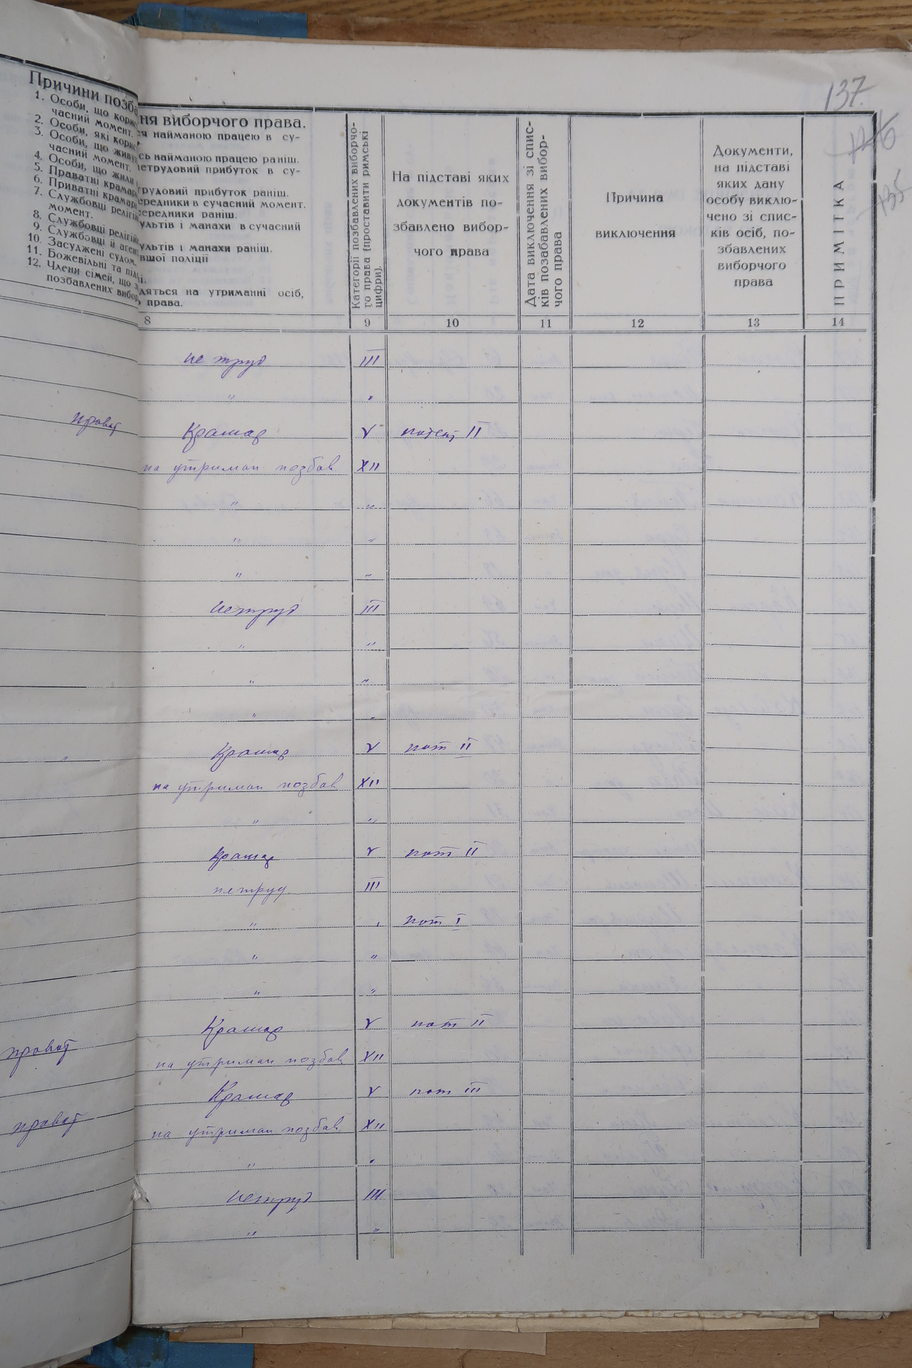 137.
Причини позба
ня виборчого права.
1. Особи, що корис
я найманою працею в су-
часний момент.
2. Особи, які корис
сь найманою працею раніш.
3. Особи, що жив
нетрудовий прибуток в су-
часний момент.
4. Особи, що жили
трудовий прибуток раніш.
5. Праватні крамарі
ередники в сучасний момент.
6. Приватні крамарі
середники раніш.
7. Службовці релігій
ультів і манахи в сучасний
момент.
8. Службовці релігій
ультів і манахи раніш.
9. Службовці й аген
вшої поліції
10. Засуджені судом.
11. Божевільні та під
12. Члени сімей, що з
дяться на утриманні осіб,
позбавлених вибор
права.
Категорії позбавлених виборчо-
го права (проставити римські
цифри).
На підставі яких
документів по-
збавлено вибор-
чого права
Дата виключення зі спис-
ків позабавлених вибор-
чого права
Причина
виключення
Документи,
на підставі
яких дану
особу виклю-
чено зі спис-
ків осіб, по-
збавлених
виборчого
права
ПРИМІТКА
8 9 10 11 12 13 14
не труд III
" "
приват Крамар V патент II
на утриман позбав XII
" "
" "
" "
нетруд III
" "
" "
" "
Крамар V пат II
на утриман позбав XII
" "
крамар V пат II
нетруд III
" " пат I
" "
" "
Крамар V пат II
приват на утриман позбав XII
Крамар V пат III
приват на утриман позбав XII
" "
нетруд III
" "